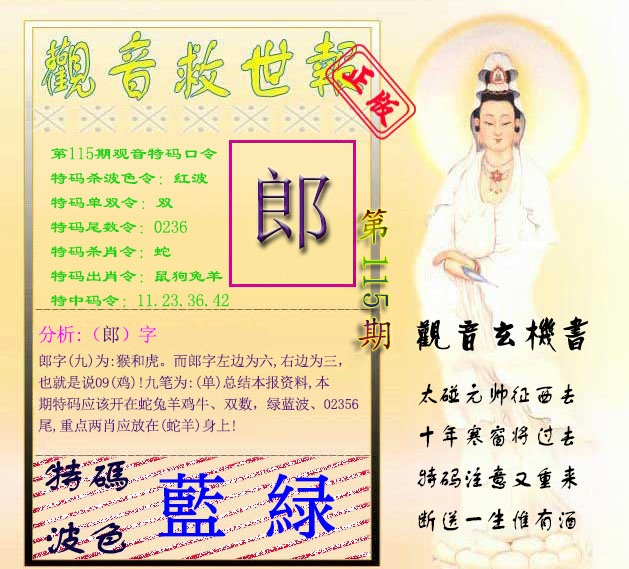 觀音救世報
正版
第115期观音特码口令
特码杀波色令: 红波
特码单双令: 双
特码尾数令: 0236
特码杀肖令: 蛇
特码出肖令: 鼠狗兔羊
特中码令: 11.23.36.42
郎
第115期
分析:（郎）字
郎字(九)为:猴和虎。而郎字左边为六,右边为三,
也就是说09(鸡)!九笔为:(单)总结本报资料,本
期特码应该开在蛇兔羊鸡牛、双数，绿蓝波、02356
尾,重点两肖应放在(蛇羊)身上!
特碼
波色
藍 緑
觀音玄機書
太碰元帅征西去
十年寒窗将过去
特码注意又重来
断送一生惟有酒